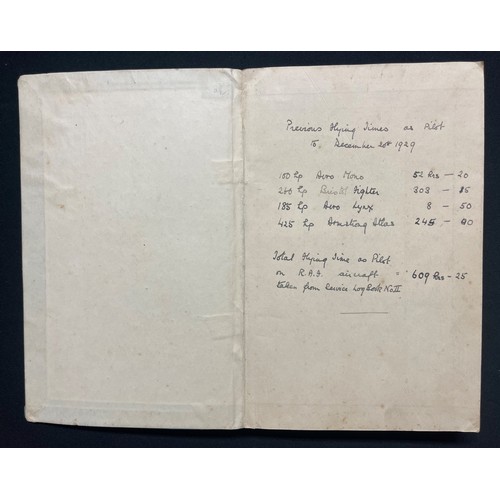 Previous Flying Times as Pilot
to December 20th 1929
100 hp Avro Mono 52 Hrs - 20
280 hp Bristol Fighter 303 - 15
185 hp Avro Lynx 8 - 50
425 hp Armstrong Atlas 245 - 00
Total Flying Time as Pilot
on R.A.F. aircraft 609 Hrs - 25
taken from Service Log Book No II